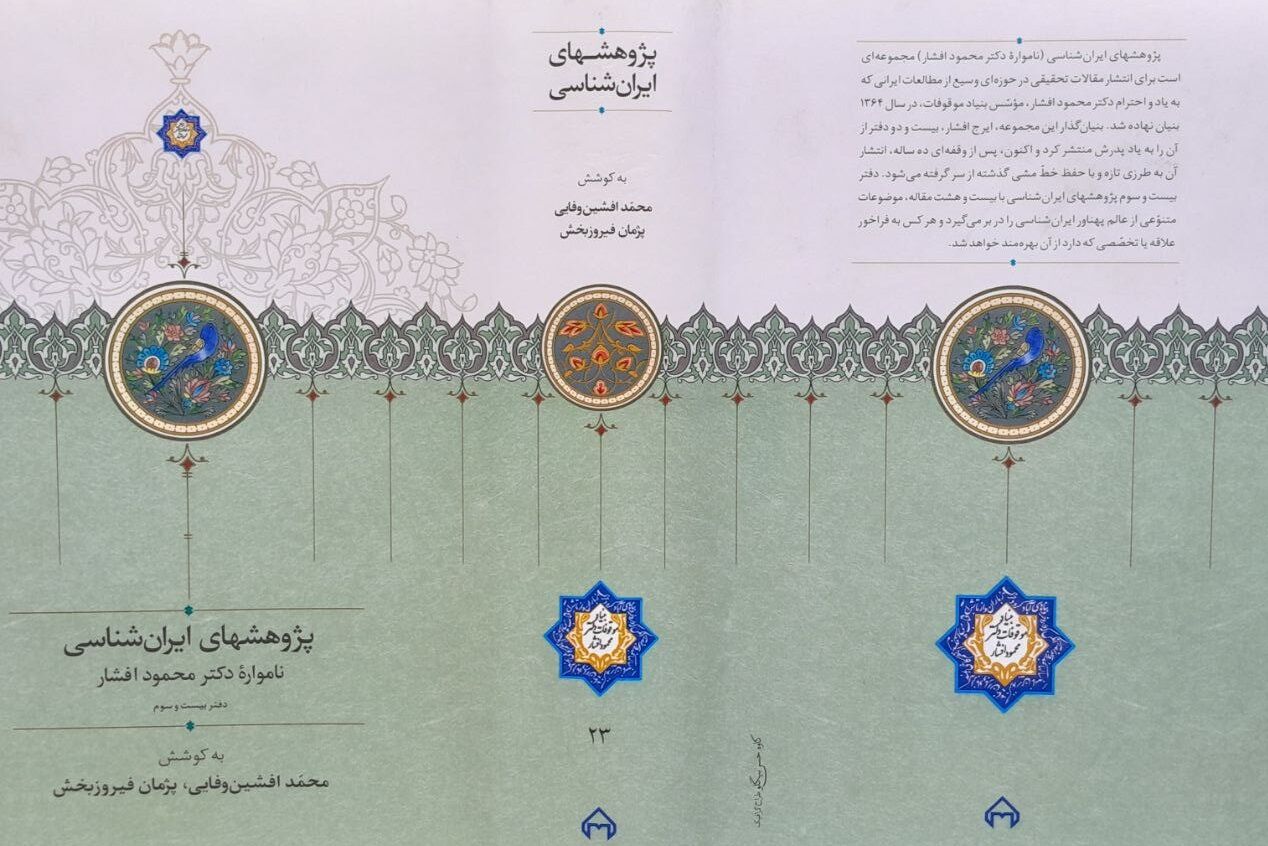 پژوهشهای ایران‌شناسی (ناموارهٔ دکتر محمود افشار) مجموعه‌ای
است برای انتشار مقالات تحقیقی در حوزه‌ای وسیع از مطالعات ایرانی که
به یاد و احترام دکتر محمود افشار، مؤسّس بنیاد موقوفات، در سال ۱۳۶۴
بنیان نهاده شد. بنیان‌گذار این مجموعه، ایرج افشار، بیست و دو دفتر از
آن را به یاد پدرش منتشر کرد و اکنون، پس از وقفه‌ای ده ساله، انتشار
آن به طرزی تازه و با حفظ خطّ مشی گذشته از سر گرفته می‌شود. دفتر
بیست و سوم پژوهشهای ایران‌شناسی با بیست و هشت مقاله، موضوعات
متنوّعی از عالم پهناور ایران‌شناسی را در بر می‌گیرد و هر کس به فراخور
علاقه یا تخصّصی که دارد از آن بهره‌مند خواهد شد.
بنیاد
موقوفات دکتر
محمود افشار
پژوهشهای
ایران‌شناسی
به کوشش
محمّد افشین‌وفایی
پژمان فیروزبخش
بنیاد
موقوفات دکتر
محمود افشار
۲۳
پژوهشهای ایران‌شناسی
ناموارهٔ دکتر محمود افشار
دفتر بیست و سوم
به کوشش
محمّد افشین‌وفایی، پژمان فیروزبخش